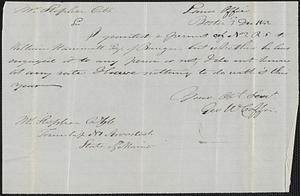 Mr. Stephen Cobb
Land Office
Boston 3 Dec 1842
Sir
I granted a permit on No 2 R 5 to
William Hammatt Esq of Bangor but whether he has
assigned it to any person or not, I do not know
at any rate I have nothing to do with it this
year
Your Obt Servt
Geo W Coffin
Mr. Stephen Cobb
Township No Aroostook
State of Maine